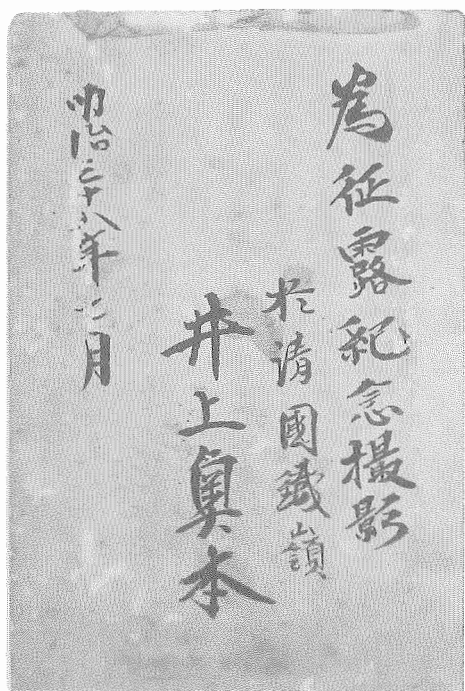 為征露紀念撮影
於清國鐵嶺
井上奧本
明治三十八年十二月